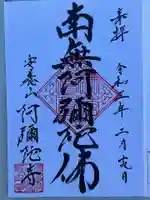 奉拝
令和二年二月
南無阿彌陀佛
安養山
阿彌陀寺